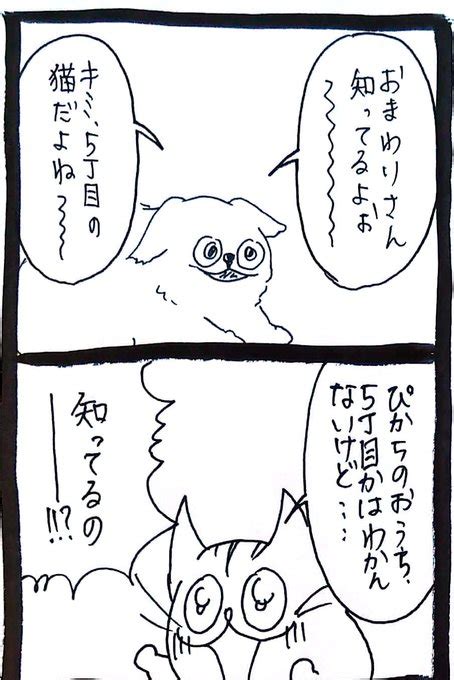 おまわりさん
知ってるよぉ
〜〜〜〜
キミ、5丁目の
猫だよね〜〜〜
ぴかちのおうち、
5丁目かはわかん
ないけど……
知ってるの
――!!?